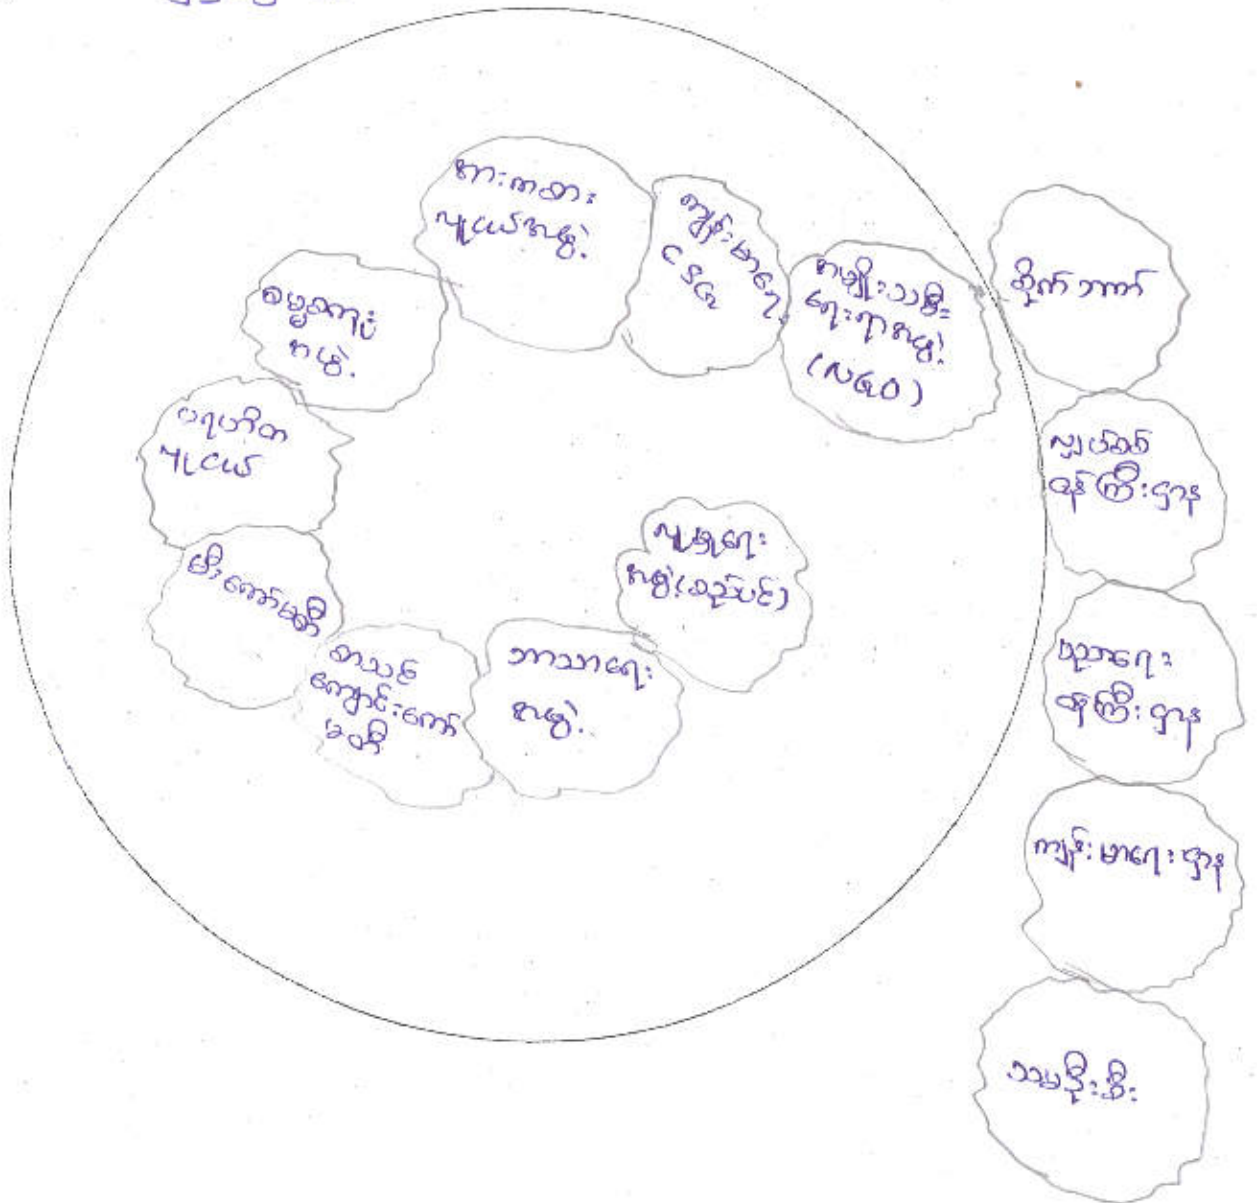 အားကစား
လူငယ်အဖွဲ့.
ကျန်းမာရေး
အမျိုးသမီး
ရေးရာအဖွဲ့.
ဓမ္မစကူး
အဖွဲ့.
ပရဟိတ
လူငယ်
မီးကော်မတီ
စာသင်
ကျောင်းကော်
မတီ
ဘာသာရေး
အဖွဲ့.
လူမှုရေး
အဖွဲ့(ဆည်ပင်)
စိုက်ဘဏ်
လျှပ်စစ်
ဝန်ကြီးဌာန
ပညာရေး
ဝန်ကြီးဌာန
ကျန်းမာရေးဌာန
သမဦးစီး